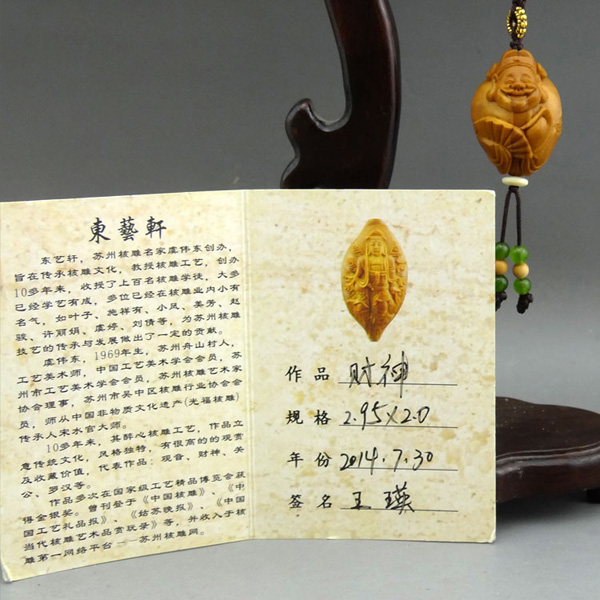 東藝軒
东艺轩，苏州核雕名家虞伟东创办，
旨在传承核雕文化，教授核雕工艺，创办
10多年来，收授了上百名核雕学徒，大多
已经学艺有成，多位已经在核雕业内小有
名气，如叶子、施祥有、小凤、美芳、赵
骏、许丽娟、虞婷、刘倩等，为苏州核雕
技艺的传承与发展做出了一定的贡献。
虞伟东，1969年生，苏州舟山村人，
工艺美术师，中国工艺美术学会会员，苏
州市工艺美术学会会员，苏州核雕艺术家
协会理事，苏州市吴中区核雕行业协会会
员，师从中国非物质文化遗产(光福核雕)
传承人宋水官大师。
10多年来，其醉心核雕工艺，作品立
意传统文化，风格独特，有很高的的观赏
及收藏价值，代表作品：观音、财神、关
公、罗汉等。
作品多次在国家级工艺精品博览会获
得金银奖。曾刊登于《中国核雕》、《中
国工艺礼品报》、《姑苏晚报》、《中国
当代核雕艺术品赏玩录》等，并收入于核
雕第一网络平台——苏州核雕网。
作品 财神
规格 2.95×2.0
年份 2014.7.30
签名 王瑛